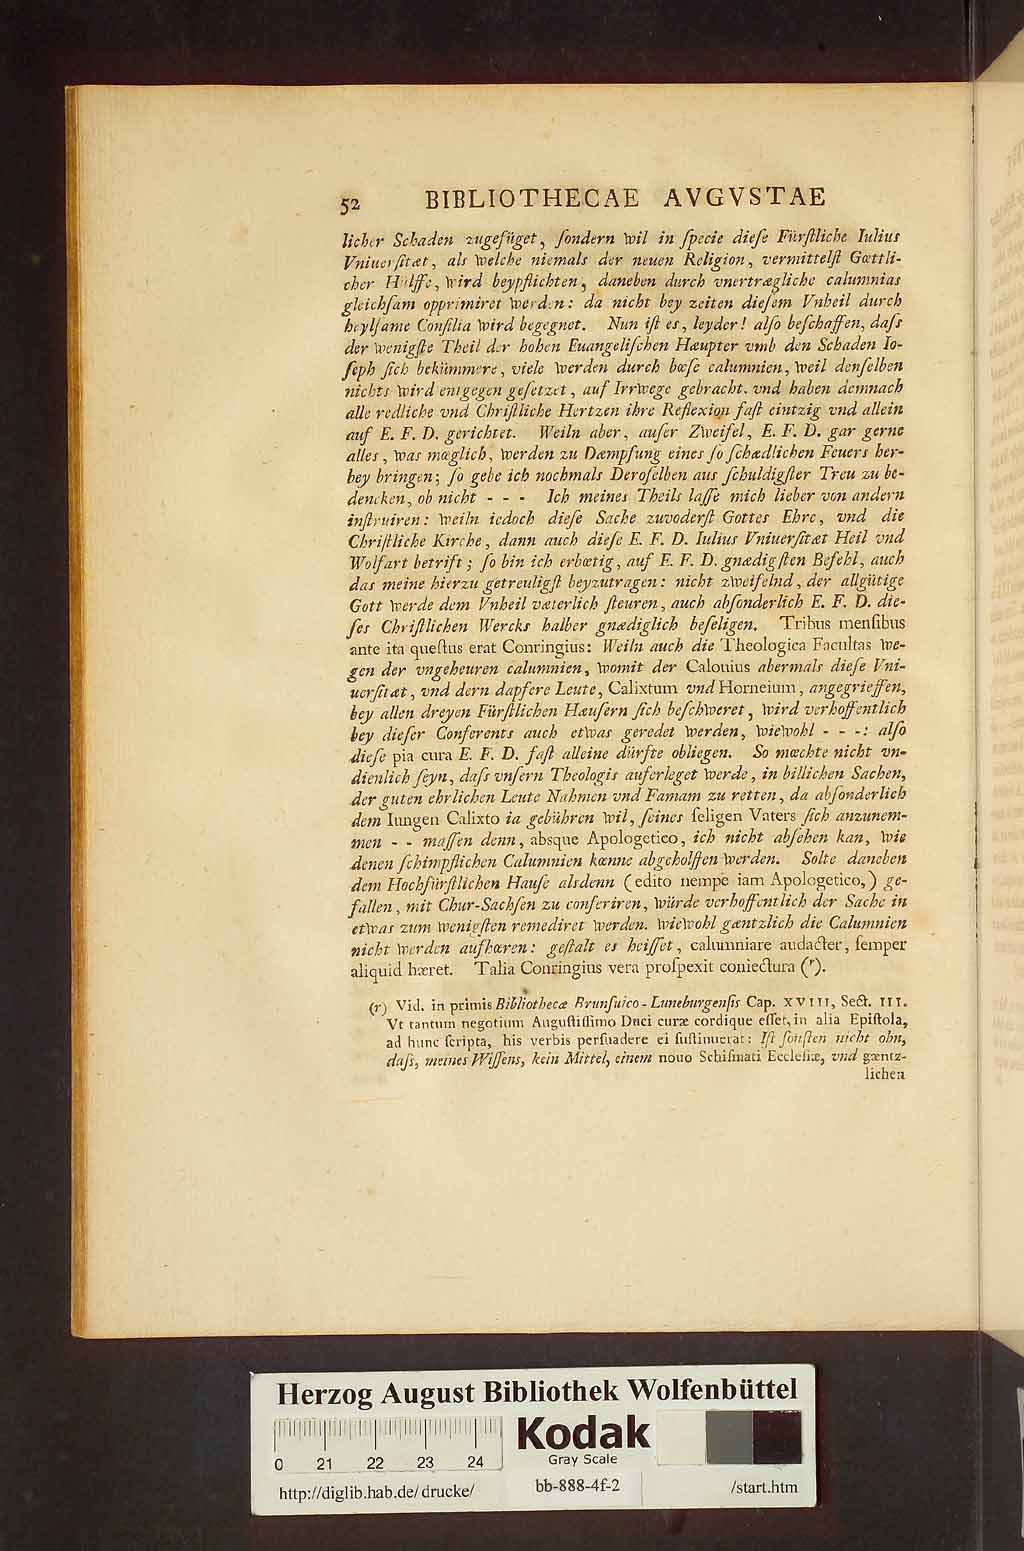 52 BIBLIOTHECAE AVGVSTAE
licher Schaden zugefüget, ſondern wil in ſpecie dieſe Fürſtliche Iulius
Vniuerſitæt, als welche niemals der neuen Religion, vermittelſt Gœttli-
cher Hülffe, wird beypflichten, daneben durch vnertrægliche calumnias
gleichſam opprimiret werden: da nicht bey zeiten dieſem Vnheil durch
heylſame Conſilia wird begegnet. Nun iſt es, leyder! alſo beſchaffen, daſs
der wenigſte Theil der hohen Euangeliſchen Hæupter vmb den Schaden Io-
ſeph ſich bekümmere, viele werden durch bœſe calumnien, weil denſelben
nichts wird entgegen geſetzet, auf Irrwege gebracht. vnd haben demnach
alle redliche vnd Chriſtliche Hertzen ihre Reflexion faſt eintzig vnd allein
auf E. F. D. gerichtet. Weiln aber, auſer Zweifel, E. F. D. gar gerne
alles, was mœglich, werden zu Dæmpfung eines ſo ſchædlichen Feuers her-
bey bringen; ſo gebe ich nochmals Deroſelben aus ſchuldigſter Treu zu be-
dencken, ob nicht - - - Ich meines Theils laſſe mich lieber von andern
inſtruiren: weiln iedoch dieſe Sache zuvoderſt Gottes Ehre, vnd die
Chriſtliche Kirche, dann auch dieſe E. F. D. Iulius Vniuerſitæt Heil vnd
Wolfart betrift; ſo bin ich erbœtig, auf E. F. D. gnædigſten Befehl, auch
das meine hierzu getreuligſt beyzutragen: nicht zweifelnd, der allgütige
Gott werde dem Vnheil væterlich ſteuren, auch abſonderlich E. F. D. die-
ſes Chriſtlichen Wercks halber gnædiglich beſeligen. Tribus menſibus
ante ita queſtus erat Conringius: Weiln auch die Theologica Facultas we-
gen der vngeheuren calumnien, womit der Calouius abermals dieſe Vni-
uerſitæt, vnd dern dapfere Leute, Calixtum vnd Horneium, angegrieffen,
bey allen dreyen Fürſtlichen Hæuſern ſich beſchweret, wird verhoffentlich
bey dieſer Conferents auch etwas geredet werden, wiewohl - - -: alſo
dieſe pia cura E. F. D. faſt alleine dürfte obliegen. So mœchte nicht vn-
dienlich ſeyn, daſs vnſern Theologis auferleget werde, in billichen Sachen,
der guten ehrlichen Leute Nahmen vnd Famam zu retten, da abſonderlich
dem Iungen Calixto ia gebühren wil, ſeines ſeligen Vaters ſich anzunem-
men - - maſſen denn, absque Apologetico, ich nicht abſehen kan, wie
denen ſchimpflichen Calumnien kœnne abgeholffen werden. Solte daneben
dem Hochfürſtlichen Hauſe alsdenn (edito nempe iam Apologetico,) ge-
fallen, mit Chur-Sachſen zu conferiren, würde verhoffentlich der Sache in
etwas zum wenigſten remediret werden. wiewohl gæntzlich die Calumnien
nicht werden aufhœren: geſtalt es heiſſet, calumniare audacter, ſemper
aliquid hæret. Talia Conringius vera proſpexit coniectura (r).
(r) Vid. in primis Bibliothecæ Brunſuico-Luneburgenſis Cap. XVIII, Sect. III.
Vt tantum negotium Auguſtiſſimo Duci curæ cordique eſſet, in alia Epiſtola,
ad hunc ſcripta, his verbis perſuadere ei ſuſtinuerat: Iſt ſonſten nicht ohn,
daſs, meines Wiſſens, kein Mittel, einem nouo Schiſmati Eccleſiæ, vnd gæntz-
lichen
Herzog August Bibliothek Wolfenbüttel
Kodak
Gray Scale
0 21 22 23 24
http://diglib.hab.de/drucke/ bb-888-4f-2 /start.htm